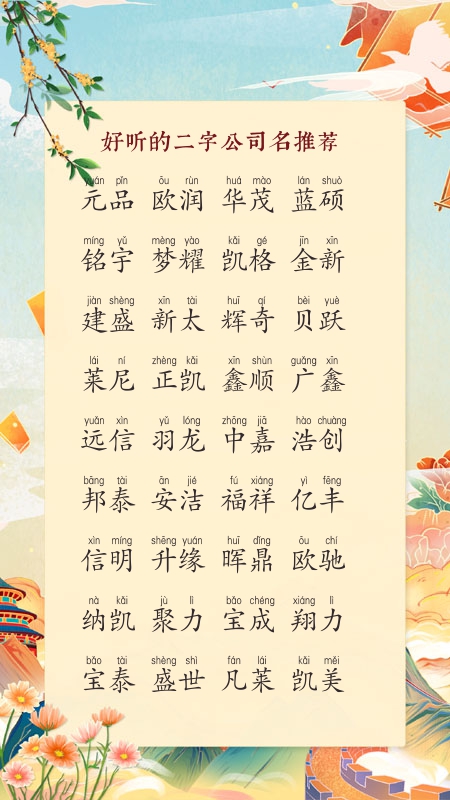 好听的二字公司名推荐
yuán pǐn ōu rùn huá mào lán shuò
元品 欧润 华茂 蓝硕
míng yǔ mèng yào kǎi gé jīn xīn
铭宇 梦耀 凯格 金新
jiàn shèng xīn tài huī qí bèi yuè
建盛 新太 辉奇 贝跃
lái ní zhèng kǎi xīn shùn guǎng xīn
莱尼 正凯 鑫顺 广鑫
yuǎn xìn yǔ lóng zhōng jiā hào chuàng
远信 羽龙 中嘉 浩创
bāng tài ān jié fú xiáng yì fēng
邦泰 安洁 福祥 亿丰
xìn míng shēng yuán huī dǐng ōu chí
信明 升缘 晖鼎 欧驰
nà kǎi jù lì bǎo chéng xiáng lì
纳凯 聚力 宝成 翔力
bǎo tài shèng shì fán lái kǎi měi
宝泰 盛世 凡莱 凯美